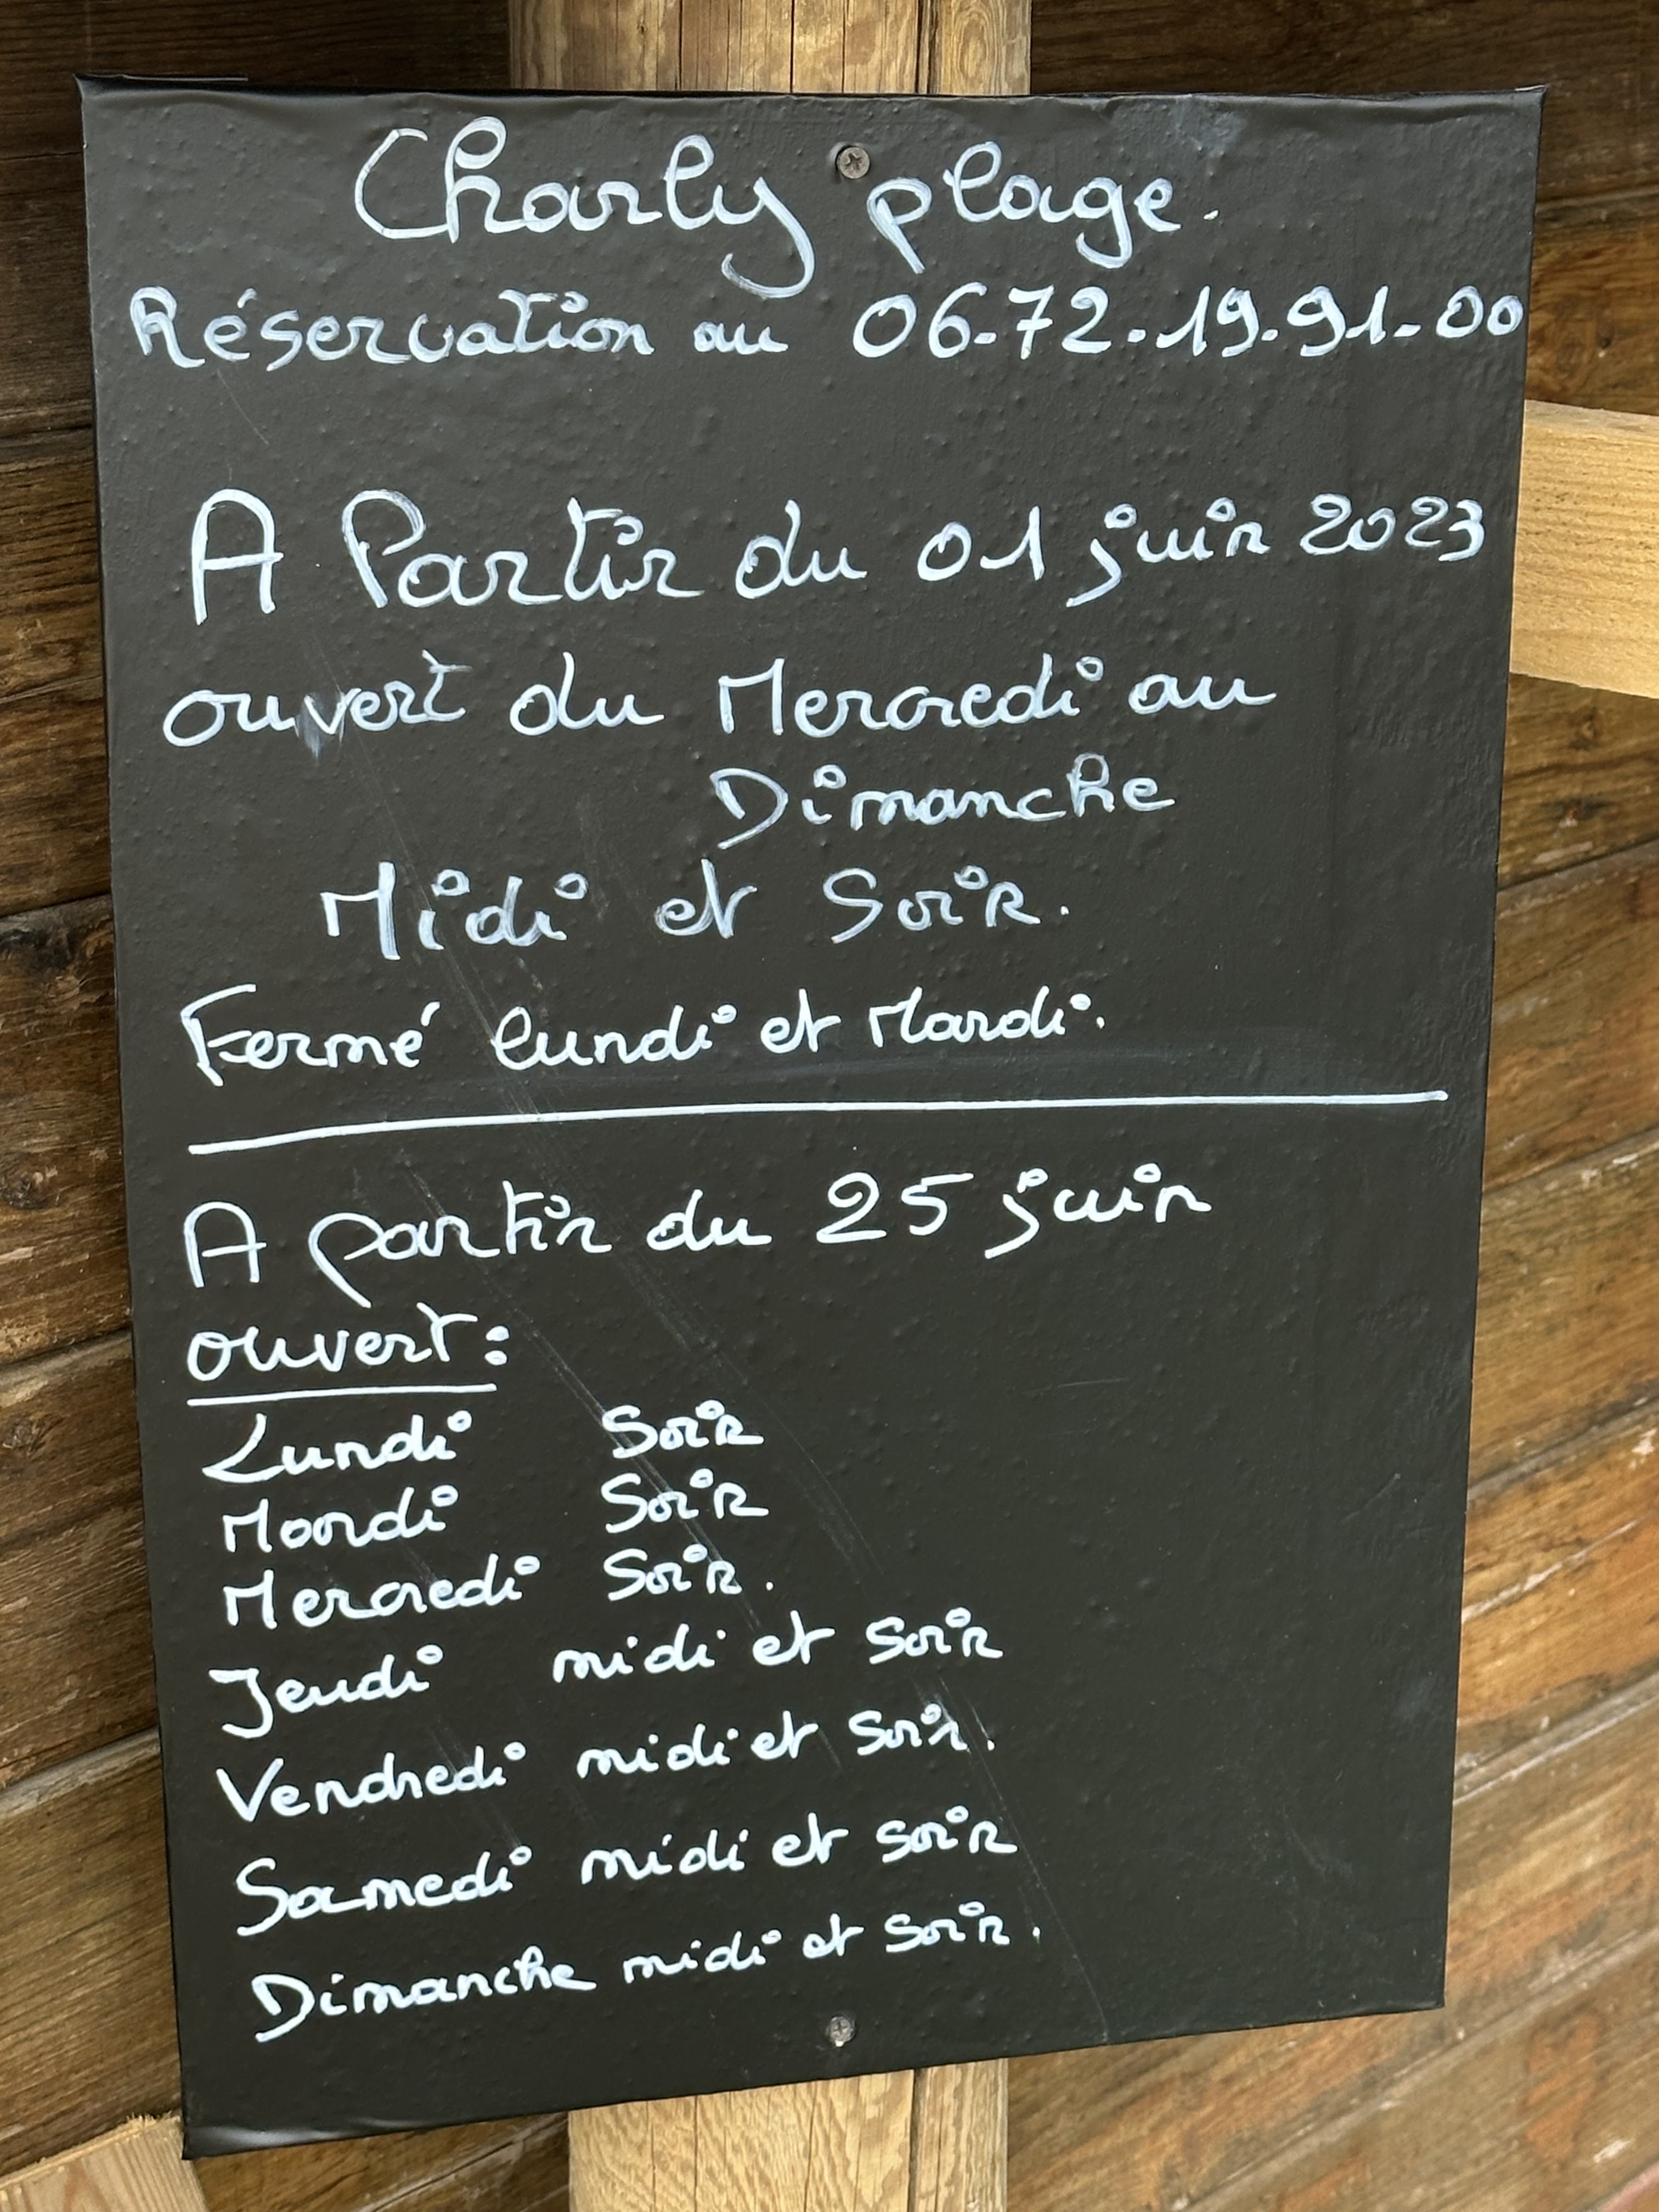 Charly plage.
Réservation au 06-72-19-91-00
A Partir du 01 juin 2023
ouvert du Mercredi au
Dimanche
Midi et Soir.
Fermé lundi et Mardi.
A partir du 25 juin
ouvert:
Lundi Soir
Mardi Soir
Mercredi Soir.
Jeudi midi et Soir
Vendredi midi et Soir.
Samedi midi et soir
Dimanche midi et soir.